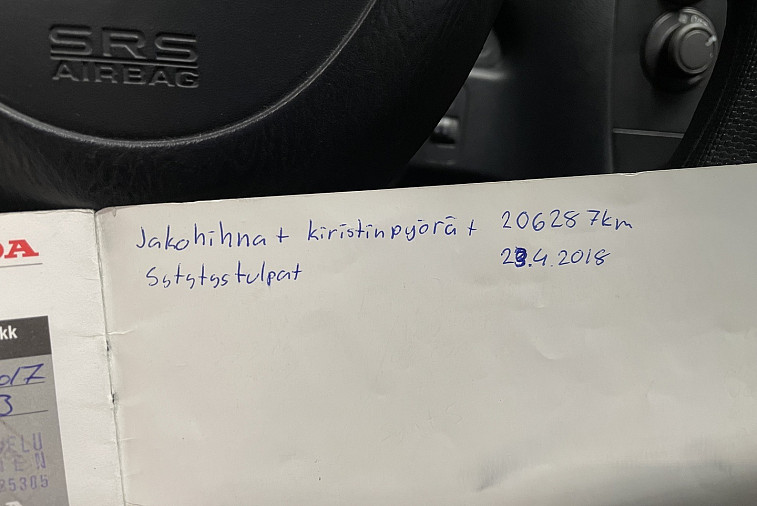 SRS
AIRBAG
Jakohihna + kiristinpyörä + 206287km
Sytytystulpat 23.4.2018
DA
kk
017
3
ELU
TEN
25305